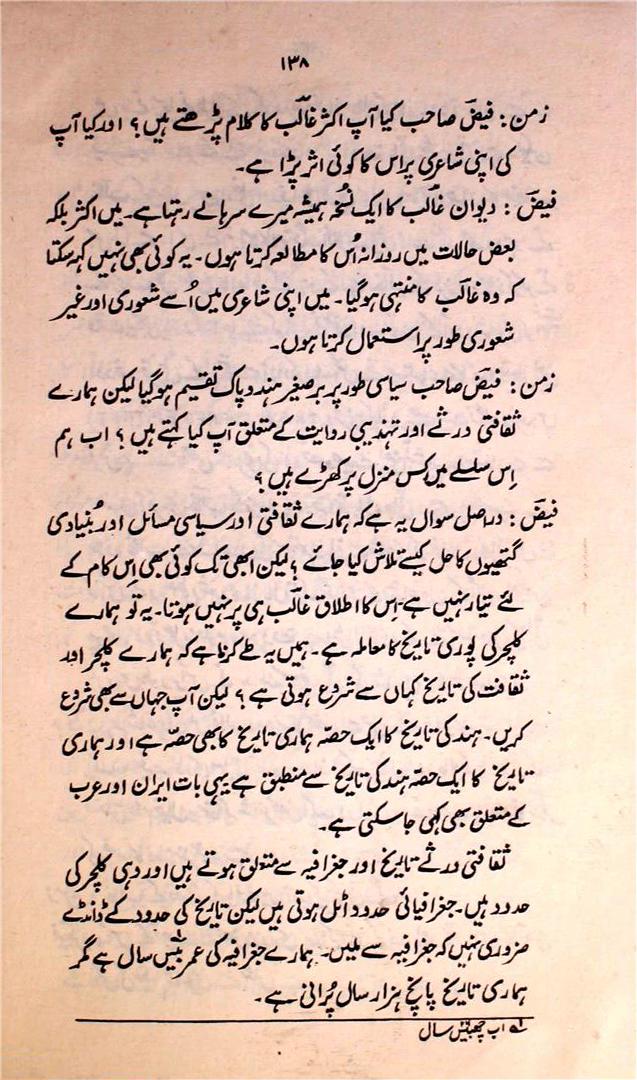 ۱۳۸
زمن: فیضؔ صاحب کیا آپ اکثر غالبؔ کا کلام پڑھتے ہیں؟ اور کیا آپ
کی اپنی شاعری پر اس کا کوئی اثر پڑا ہے۔
فیضؔ: دیوان غالبؔ کا ایک نُسخہ ہمیشہ میرے سرہانے رہتا ہے۔ میں اکثر بلکہ
بعض حالات میں روزانہ اُس کا مطالعہ کرتا ہوں۔ یہ کوئی بھی نہیں کہہ سکتا
کہ وہ غالبؔ کا منتہی ہوگیا۔ میں اپنی شاعری میں اُسے شعوری اور غیر
شعوری طور پر استعمال کرتا ہوں۔
زمن: فیضؔ صاحب سیاسی طور پر برصغیر ہند و پاک تقسیم ہوگیا لیکن ہمارے
ثقافتی ورثے اور تہذیبی روایت کے متعلق آپ کیا کہتے ہیں؟ اب ہم
اِس سلسلے میں کس منزل پر کھڑے ہیں؟
فیضؔ: دراصل سوال یہ ہے کہ ہمارے ثقافتی اور سیاسی مسائل اور بُنیادی
گتھیوں کا حل کیسے تلاش کیا جائے؟ لیکن ابھی تک کوئی بھی اِس کام کے
لئے تیار نہیں ہے۔ اِس کا اطلاق غالبؔ ہی پر نہیں ہوتا۔ یہ تو ہمارے
کلچر کی پوری تاریخ کا معاملہ ہے۔ ہمیں یہ طے کرنا ہے کہ ہمارے کلچر اور
ثقافت کی تاریخ کہاں سے شروع ہوتی ہے؟ لیکن آپ جہاں سے بھی شروع
کریں۔ ہند کی تاریخ کا ایک حصّہ ہماری تاریخ کا بھی حصّہ ہے اور ہماری
تاریخ کا ایک حصّہ ہند کی تاریخ سے منطبق ہے یہی بات ایران اور عرب
کے متعلق بھی کہی جاسکتی ہے۔
ثقافتی ورثے تاریخ اور جغرافیہ سے متعلق ہوتے ہیں اور وہی کلچر کی
حدود ہیں۔ جغرافیائی حدود اٹل ہوتی ہیں لیکن تاریخ کی حدود کے ڈانڈے
ضروری نہیں کہ جغرافیہ سے ملیں۔ ہمارے جغرافیہ کی عمر بتیس سال ہے مگر
ہماری تاریخ پانچ ہزار سال پُرانی ہے۔
لہ اب چھبتیس سال